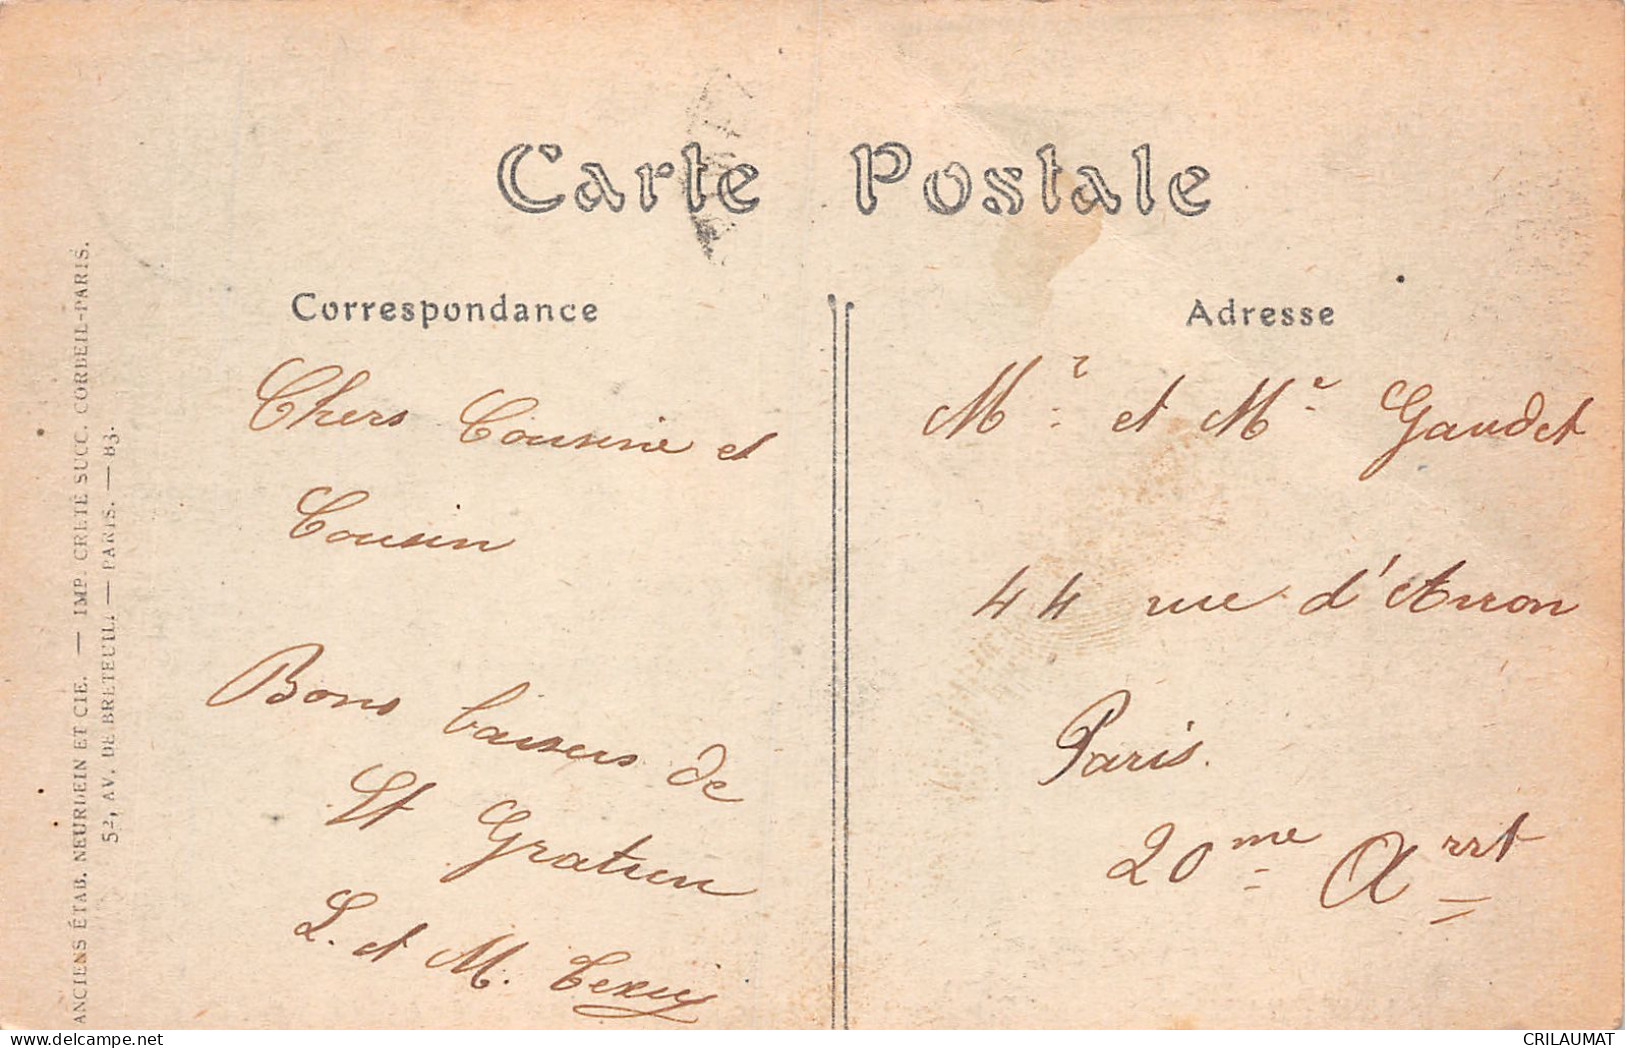 Carte Postale
Correspondance
Chers Cousine et
Cousin
Bons baisers de
St Gratien
L. et M.
Adresse
Mr et Me Gaudet
44 rue d'Avron
Paris.
20me Arrt
ANCIENS ÉTAB. NEURDEIN ET CIE. — IMP. CRÉTÉ SUCC. CORBEIL-PARIS.
52, AV. DE BRETEUIL. — PARIS. — B3.
delcampe.net
CRILAUMAT